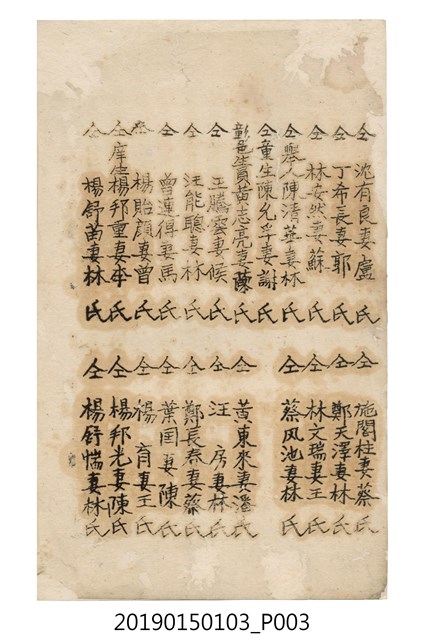 仝 沈有良妻盧氏
仝 丁希長妻郭氏
仝 林安然妻蘇氏
仝 舉人陳清華妻林氏
仝 童生陳允孚妻謝氏
彰邑生員黃志亮妻陳氏
仝 王騰雲妻侯氏
仝 汪能聰妻林氏
仝 曾連得妻馬氏
仝 楊貽顏妻曾氏
仝 庠生楊邦重妻李氏
仝 楊舒苗妻林氏
仝 施閣柱妻蔡氏
仝 鄭天澤妻林氏
仝 林文瑞妻王氏
仝 蔡风池妻林氏
仝 黃東來妻潘氏
仝 汪房妻林氏
仝 鄭長泰妻蔡氏
仝 葉国妻陳氏
仝 楊育妻王氏
仝 楊邦光妻陳氏
仝 楊舒惴妻林氏
20190150103_P003